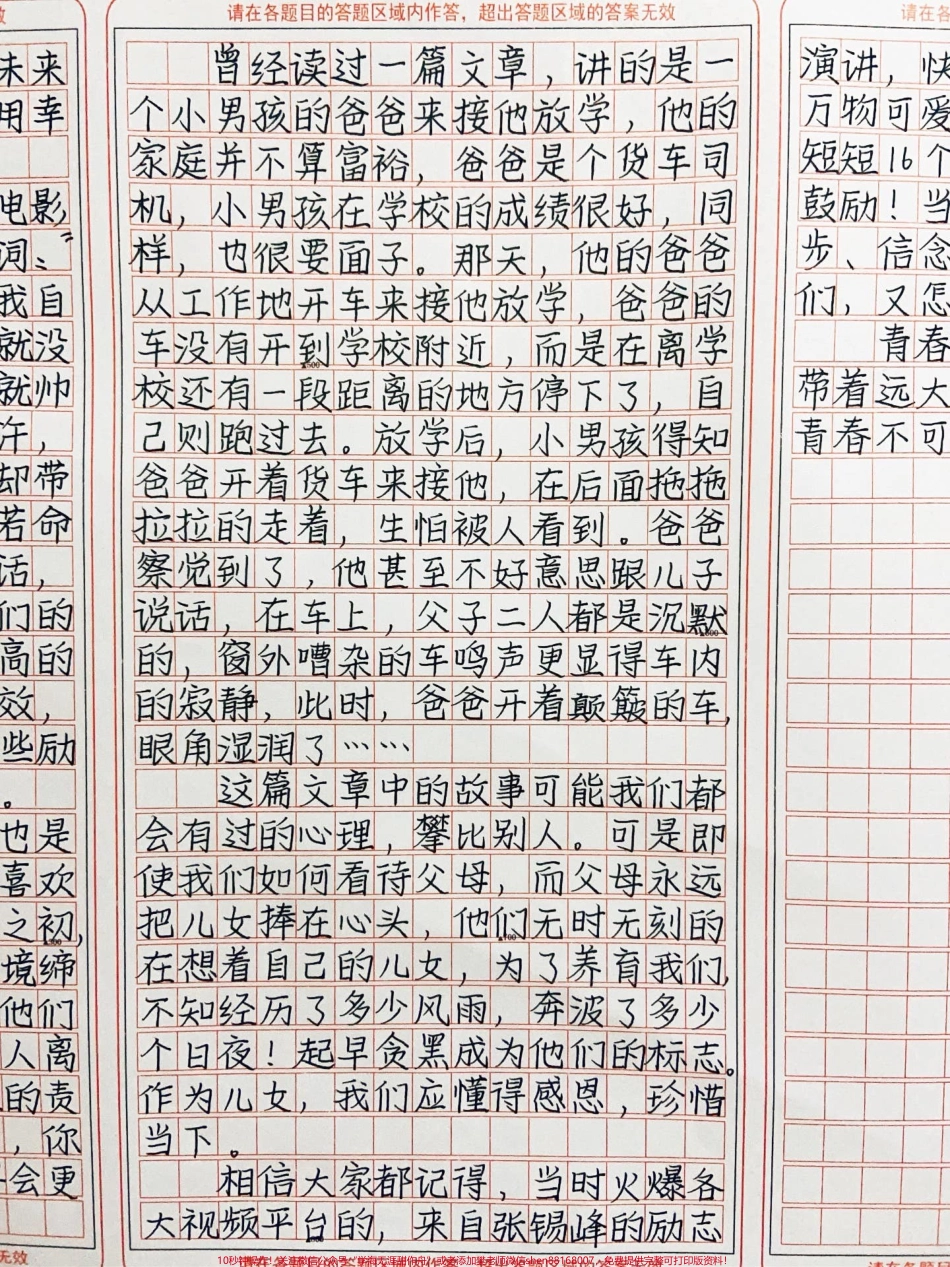 请在各题目的答题区域内作答，超出答题区域的答案无效
未来
用幸
电影，
词：“
我自
就没
就帅
许，
却带
若命
话，
们的
高的
效，
些励
。
也是
喜欢
之初，
境缔
他们
人离
的责
，你
会更
无效
曾经读过一篇文章，讲的是一
个小男孩的爸爸来接他放学，他的
家庭并不算富裕，爸爸是个货车司
机，小男孩在学校的成绩很好，同
样，也很要面子。那天，他的爸爸
从工作地开车来接他放学，爸爸的
车没有开到学校附近，而是在离学
校还有一段距离的地方停下了，自
己则跑过去。放学后，小男孩得知
爸爸开着货车来接他，在后面拖拖
拉拉的走着，生怕被人看到。爸爸
察觉到了，他甚至不好意思跟儿子
说话，在车上，父子二人都是沉默
的，窗外嘈杂的车鸣声更显得车内
的寂静，此时，爸爸开着颠簸的车，
眼角湿润了……
这篇文章中的故事可能我们都
会有过的心理，攀比别人。可是即
使我们如何看待父母，而父母永远
把儿女捧在心头，他们无时无刻的
在想着自己的儿女，为了养育我们，
不知经历了多少风雨，奔波了多少
个日夜！起早贪黑成为他们的标志。
作为儿女，我们应懂得感恩，珍惜
当下。
相信大家都记得，当时火爆各
大视频平台的，来自张锡峰的励志
请在各
演讲，快
万物可爱
短短16个
鼓励！当
步、信念
们，又怎
青春
带着远大
青春不可
免费提供完整可打印版资料！